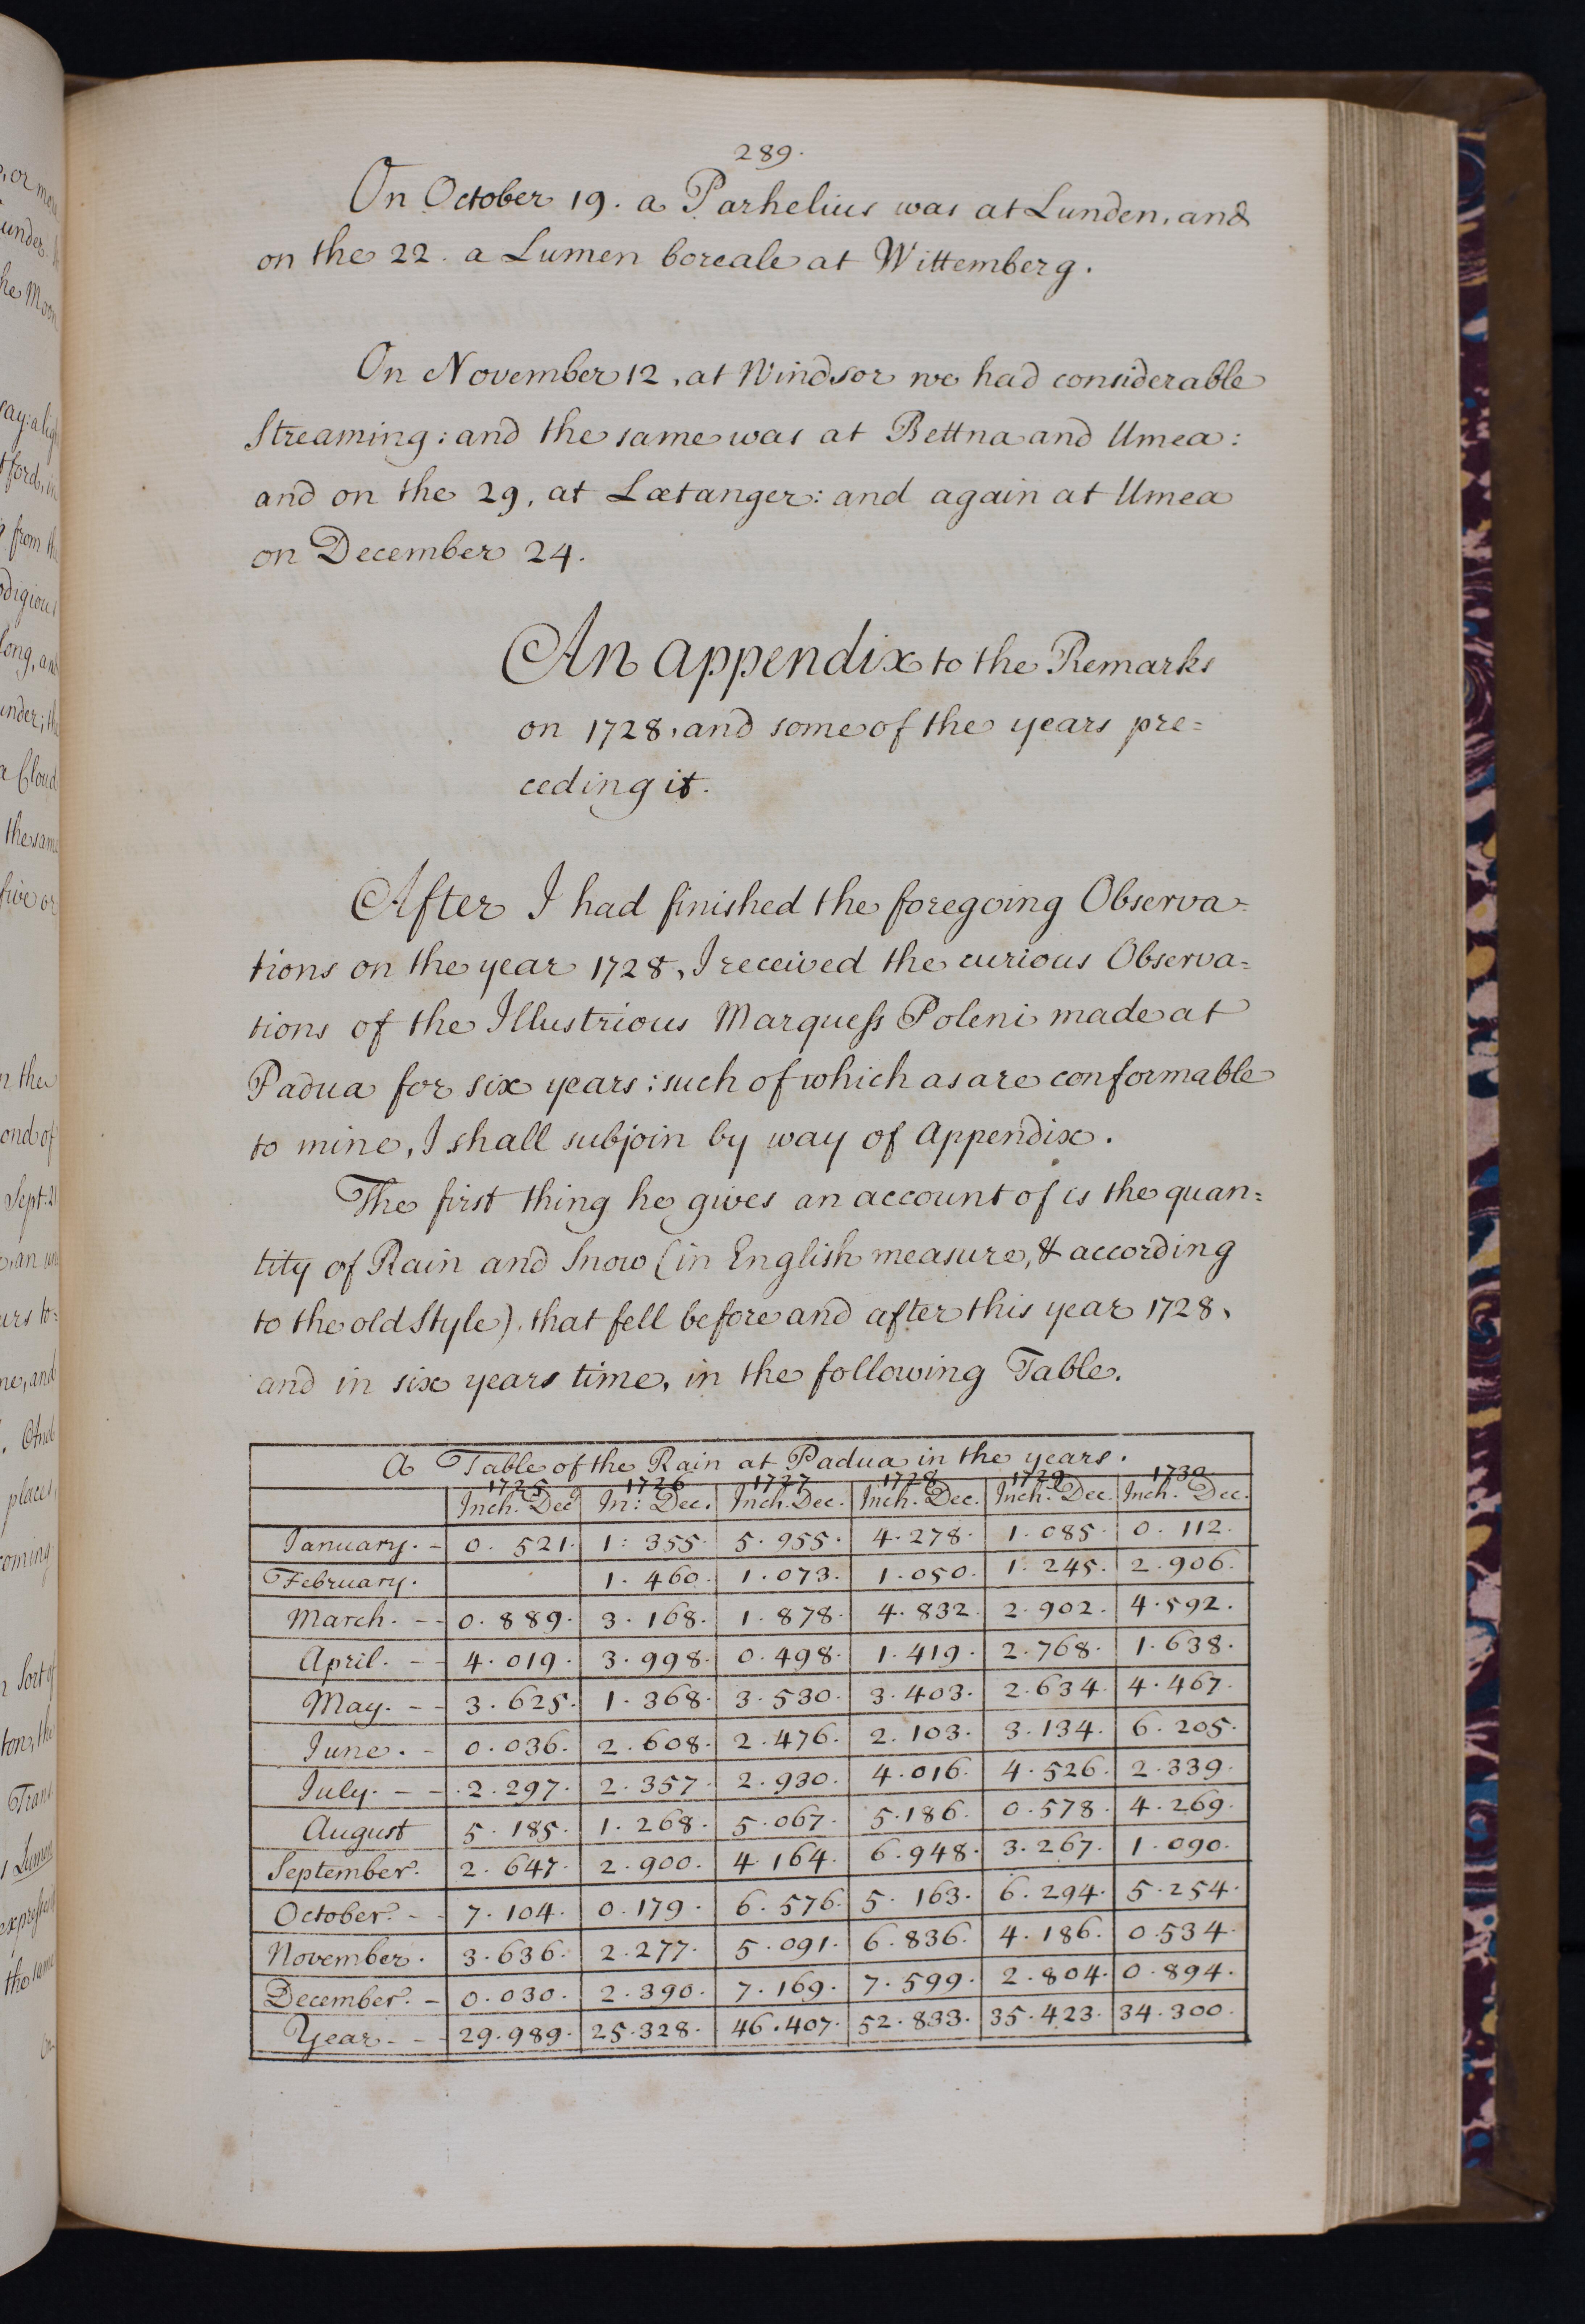 289.
On October 19. a Parhelius was at Lunden, and
on the 22. a Lumen boreale at Wittemberg.
On November 12, at Windsor we had considerable
Streaming: and the same was at Bettna and Umea:
and on the 29, at Lætanger: and again at Umea
on December 24.
An appendix to the Remarks
on 1728, and some of the years pre=
ceding it.
After I had finished the foregoing Observa=
tions on the year 1728, I received the curious Observa=
tions of the Illustrious Marquess Poleni made at
Padua for six years: such of which as are conformable
to mine, I shall subjoin by way of Appendix.
The first thing he gives an account of is the quan=
tity of Rain and Snow (in English measure, & according
to the old Style). that fell before and after this year 1728,
and in six years time, in the following Table.
A Table of the Rain at Padua in the years.
1725 1726 1727 1728 1729 1730
Inch. Dec In: Dec. Inch. Dec. Inch. Dec. Inch. Dec. Inch. Dec.
January. - 0. 521. 1: 355. 5. 955. 4. 278. 1. 085. 0. 112.
February. 1. 460. 1. 073. 1. 050. 1. 245. 2. 906.
March. - - 0. 889. 3. 168. 1. 878. 4. 832. 2. 902. 4. 592.
April. - - 4. 019. 3. 998. 0. 498. 1. 419. 2. 768. 1. 638.
May. - - 3. 625. 1. 368. 3. 530. 3. 403. 2. 634. 4. 467.
June. - 0. 036. 2. 608. 2. 476. 2. 103. 3. 134. 6. 205.
July. - - 2. 297. 2. 357. 2. 930. 4. 016. 4. 526. 2. 339.
August 5. 185. 1. 268. 5. 067. 5. 186. 0. 578. 4. 269.
September. 2. 647. 2. 900. 4. 164. 6. 948. 3. 267. 1. 090.
October. - - 7. 104. 0. 179. 6. 576. 5. 163. 6. 294. 5. 254.
November. 3. 636. 2. 277. 5. 091. 6. 836. 4. 186. 0. 534.
December. - 0. 030. 2. 390. 7. 169. 7. 599. 2. 804. 0. 894.
Year. - - 29. 989. 25. 328. 46. 407. 52. 833. 35. 423. 34. 300.